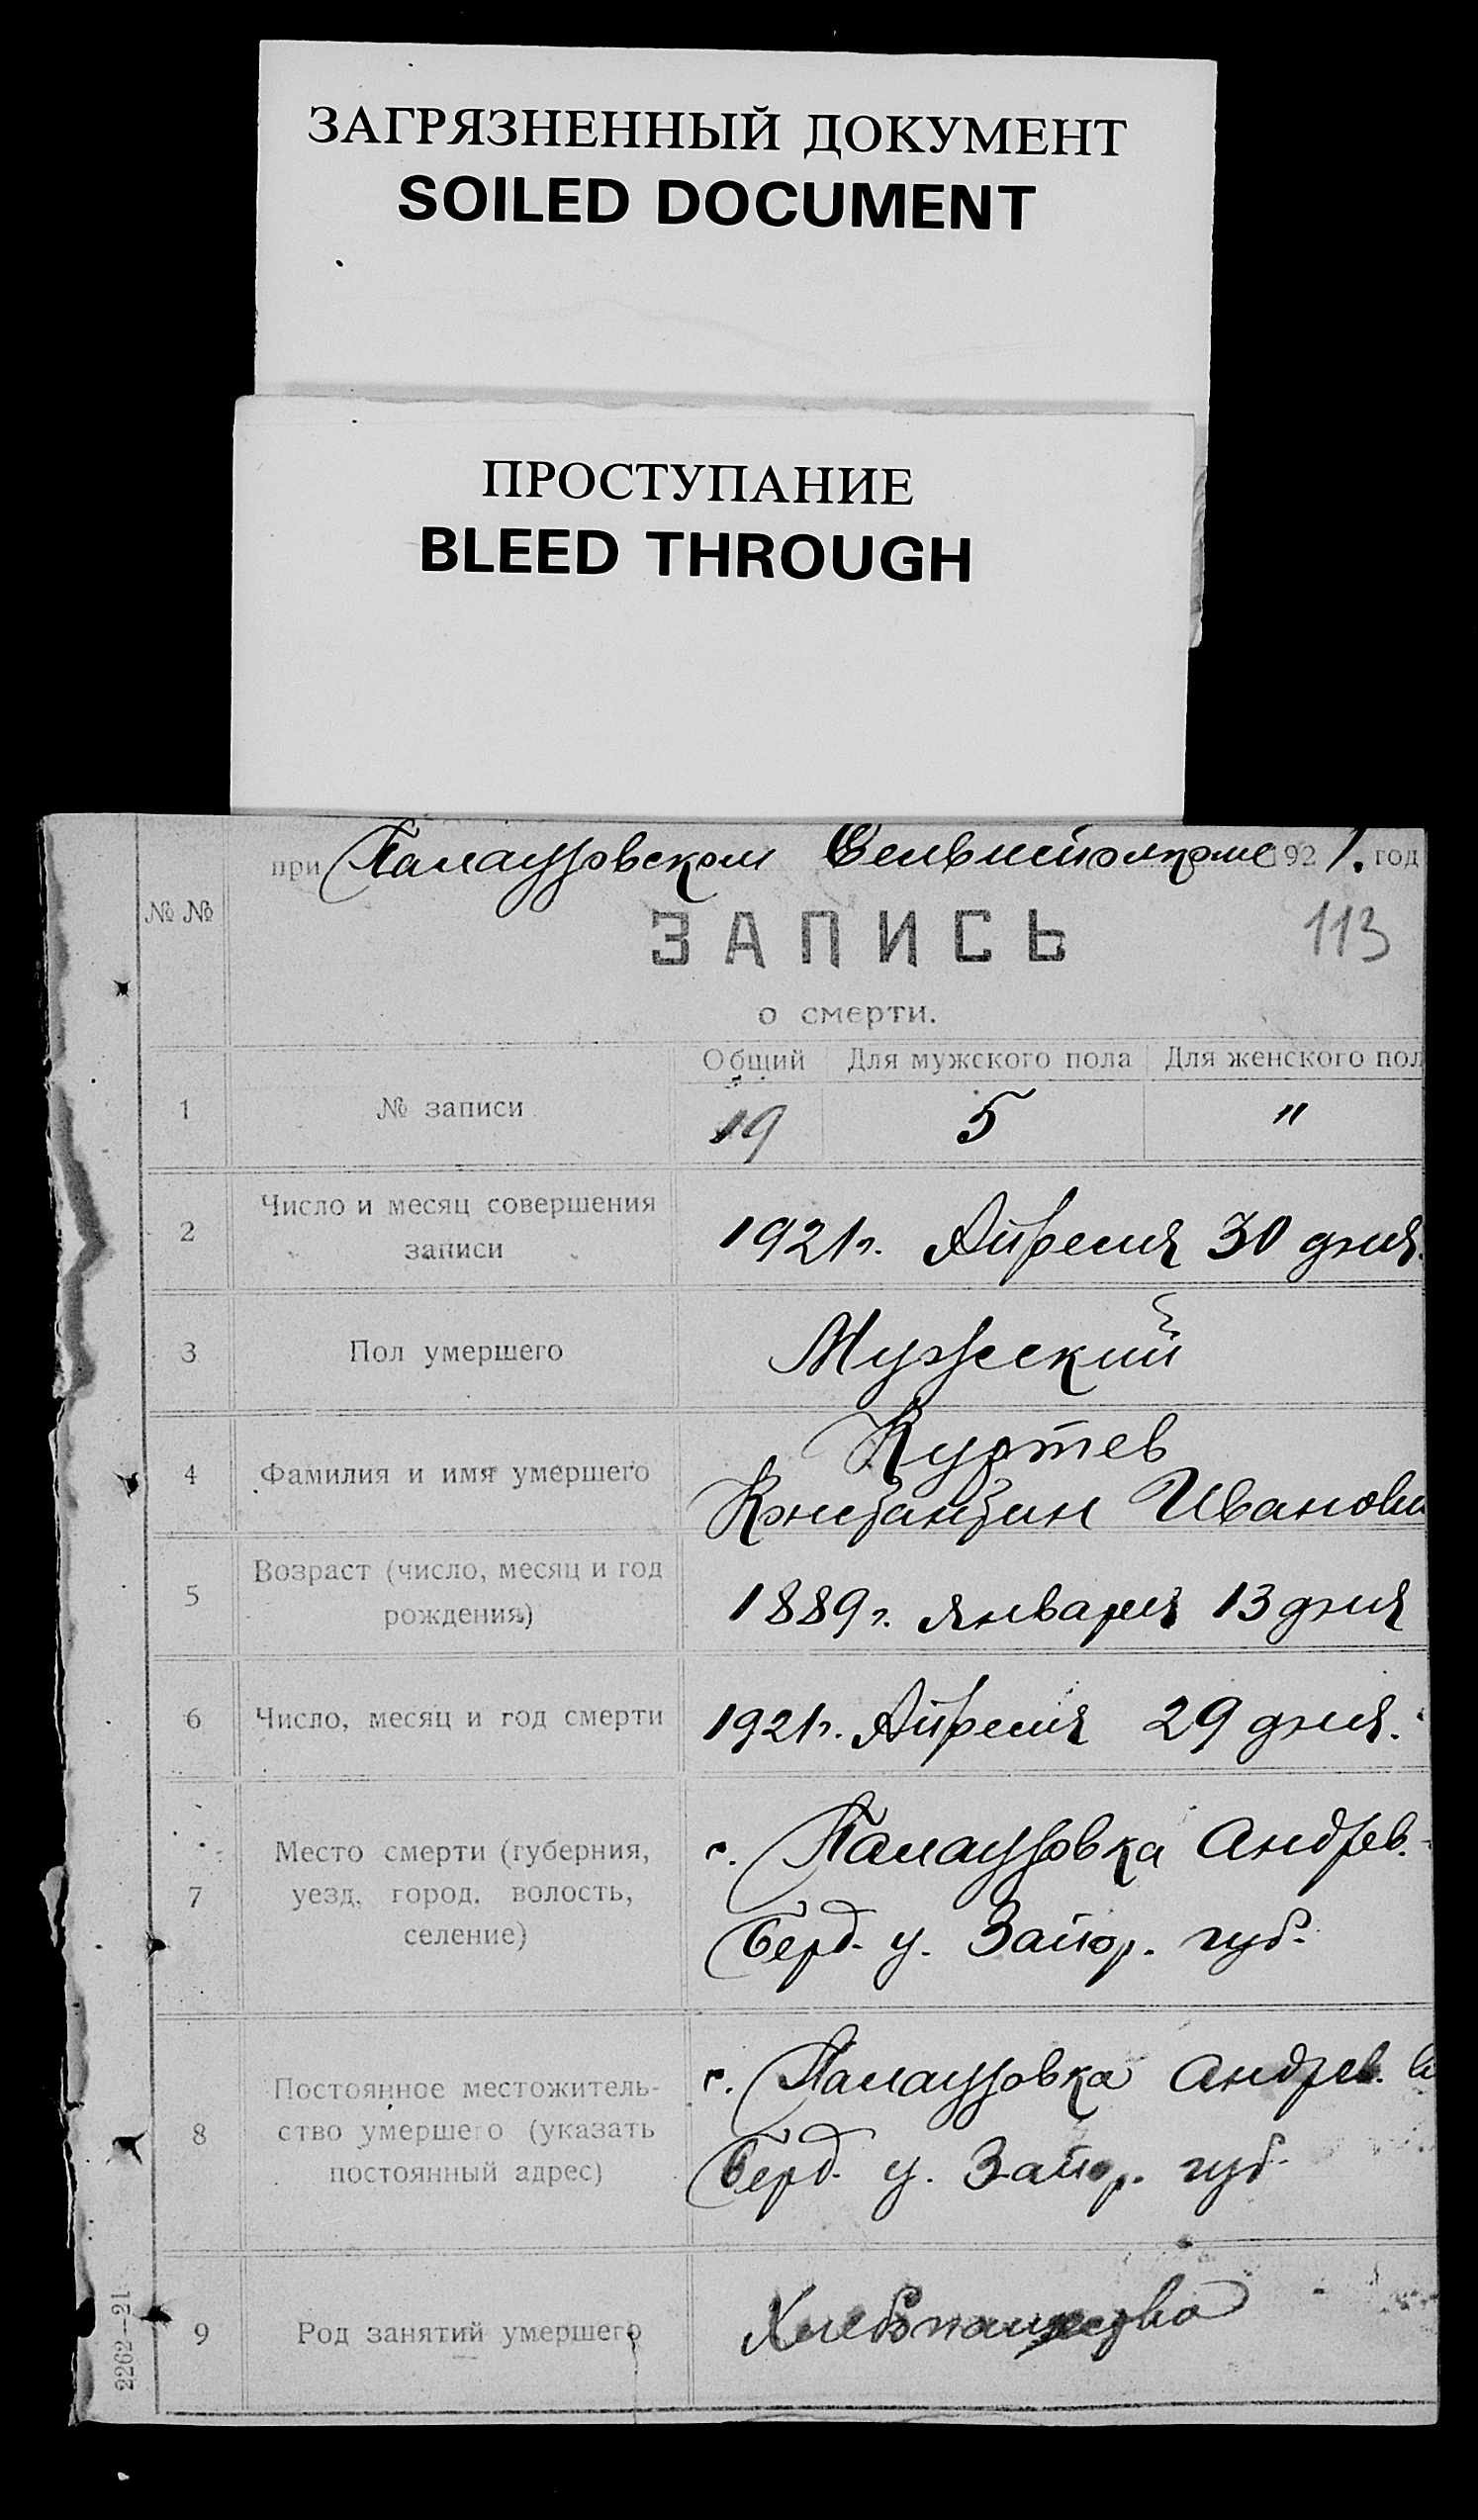 ЗАГРЯЗНЕННЫЙ ДОКУМЕНТ
SOILED DOCUMENT
ПРОСТУПАНИЕ
BLEED THROUGH
при Палаузовском Сельисполкоме 1921. год
№ №
ЗАПИСЬ
113
о смерти.
Общий Для мужского пола Для женского пол
1 № записи 19 5 "
2 Число и месяц совершения
записи
1921 г. Апреля 30 дня.
3 Пол умершего Мужеский
4 Фамилия и имя умершего
Куртев
Константин Иванови
5 Возраст (число, месяц и год
рождения)
1889 г. января 13 дня
6 Число, месяц и год смерти 1921 г. Апреля 29 дня.
7 Место смерти (губерния,
уезд, город, волость,
селение)
с. Палаузовка Андрев.
Берд. у. Запор. губ.
8 Постоянное местожитель-
ство умершего (указать
постоянный адрес)
с. Палаузовка Андрев. в
Берд. у. Запор. губ.
9 Род занятий умершего Хлебопашество
2262—21